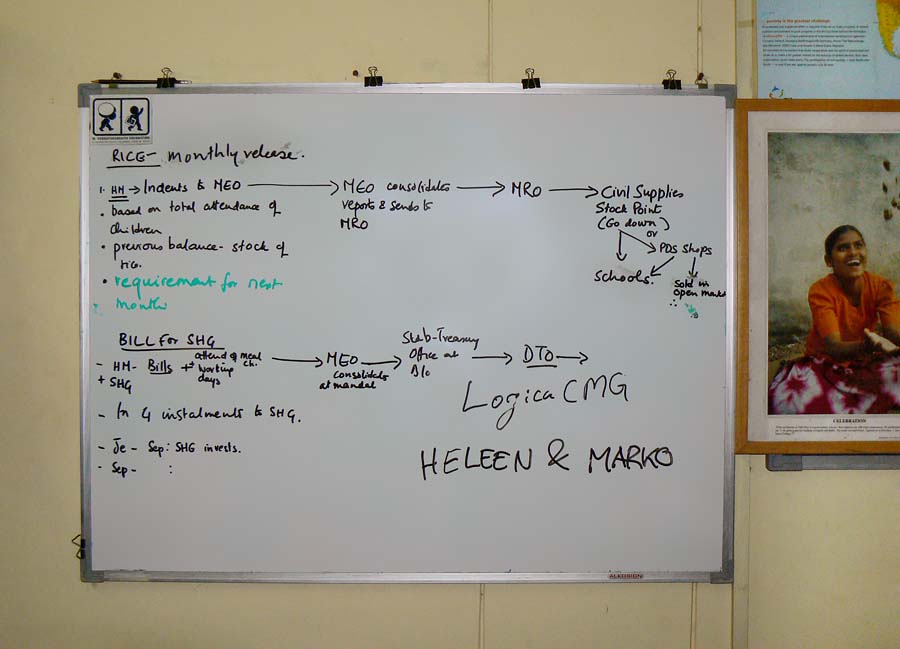 poverty is the greatest challenge
RICE- monthly release.
1. HM → Indents to MEO → MEO consolidates reports & sends to MRO → MRO → Civil Supplies
Stock Point
(Go down)
or
PDS Shops
Schools.
Sold in
open market
• based on total attendance of
children
• previous balance- stock of
• requirement for next
month
BILL FOR SHG
- HM- Bills + attend of meal ch.
working
days
+ SHG
→ MEO
consolidates
at mandal
Office at
→ DTO →
Logica CMG
- In 4 instalments to SHG.
HELEEN & MARKO
- Je - Sep: SHG invests.
- Sep- :
ALKOSIGN
CELEBRATION